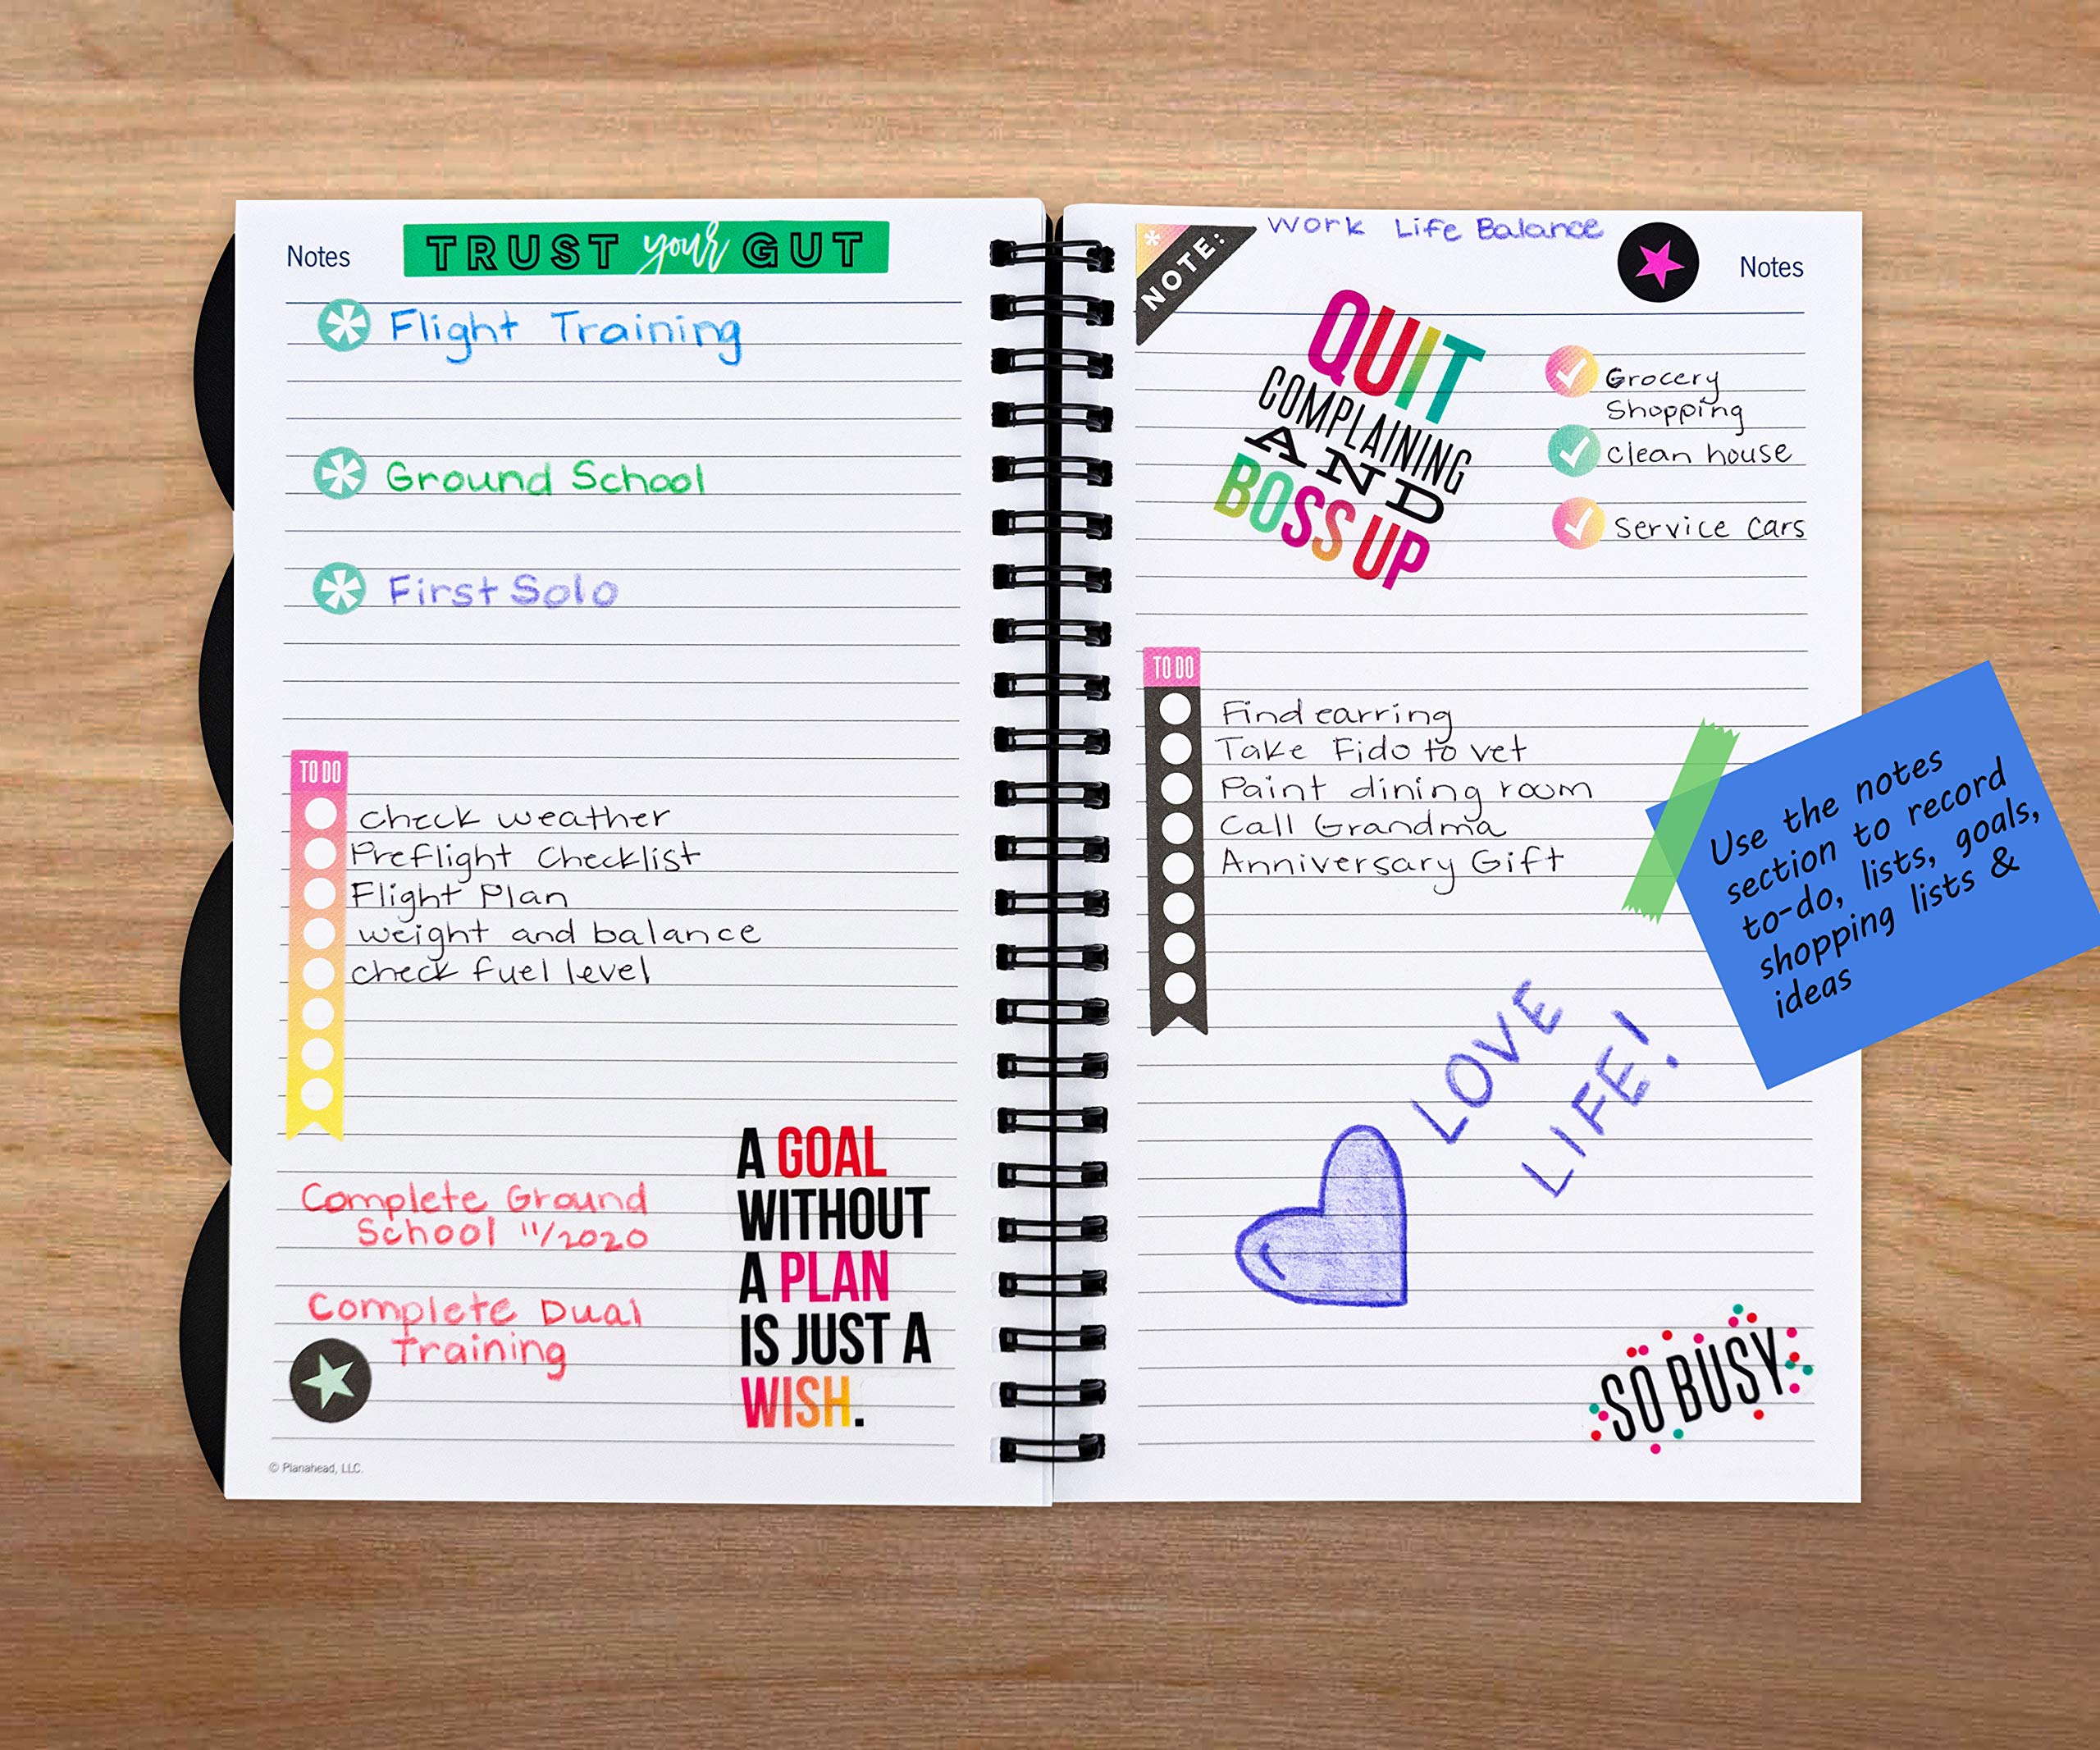 Notes
TRUST your GUT
Flight Training
Ground School
First Solo
TO DO
check weather
Preflight Checklist
Flight Plan
weight and balance
check fuel level
Complete Ground
School 11/2020
Complete Dual
Training
A GOAL
WITHOUT
A PLAN
IS JUST A
WISH.
© Planahead, LLC.
NOTE:
Work Life Balance
Notes
QUIT
COMPLAINING
AND
BOSS UP
Grocery
Shopping
Clean house
Service Cars
TO DO
Find earring
Take Fido to vet
Paint dining room
Call Grandma
Anniversary Gift
LOVE
LIFE!
SO BUSY
Use the notes
section to record
to-do, lists, goals,
shopping lists &
ideas